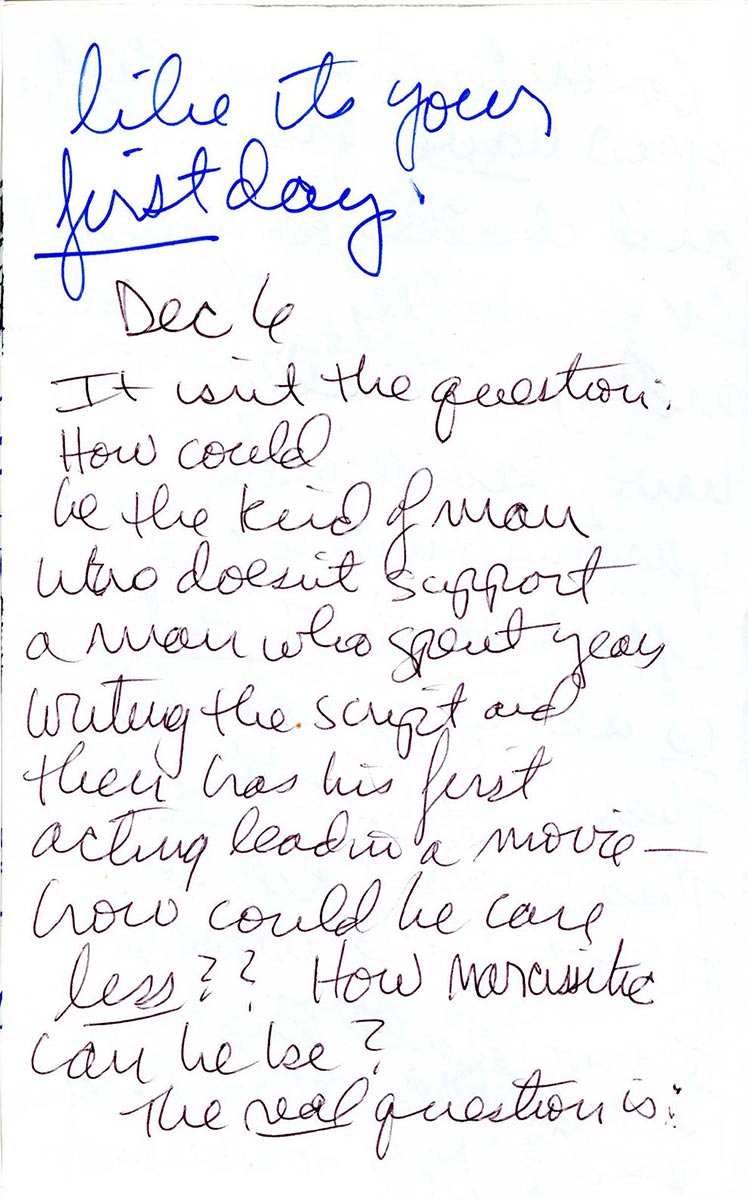 like its your
first day.
Dec 6
It isn't the question.
How could
he the kind of man
who doesn't support
a man who spent years
writing the script and
then has his first
acting lead in a movie—
how could he care
less?? How narcissitic
can he be?
The real question is: